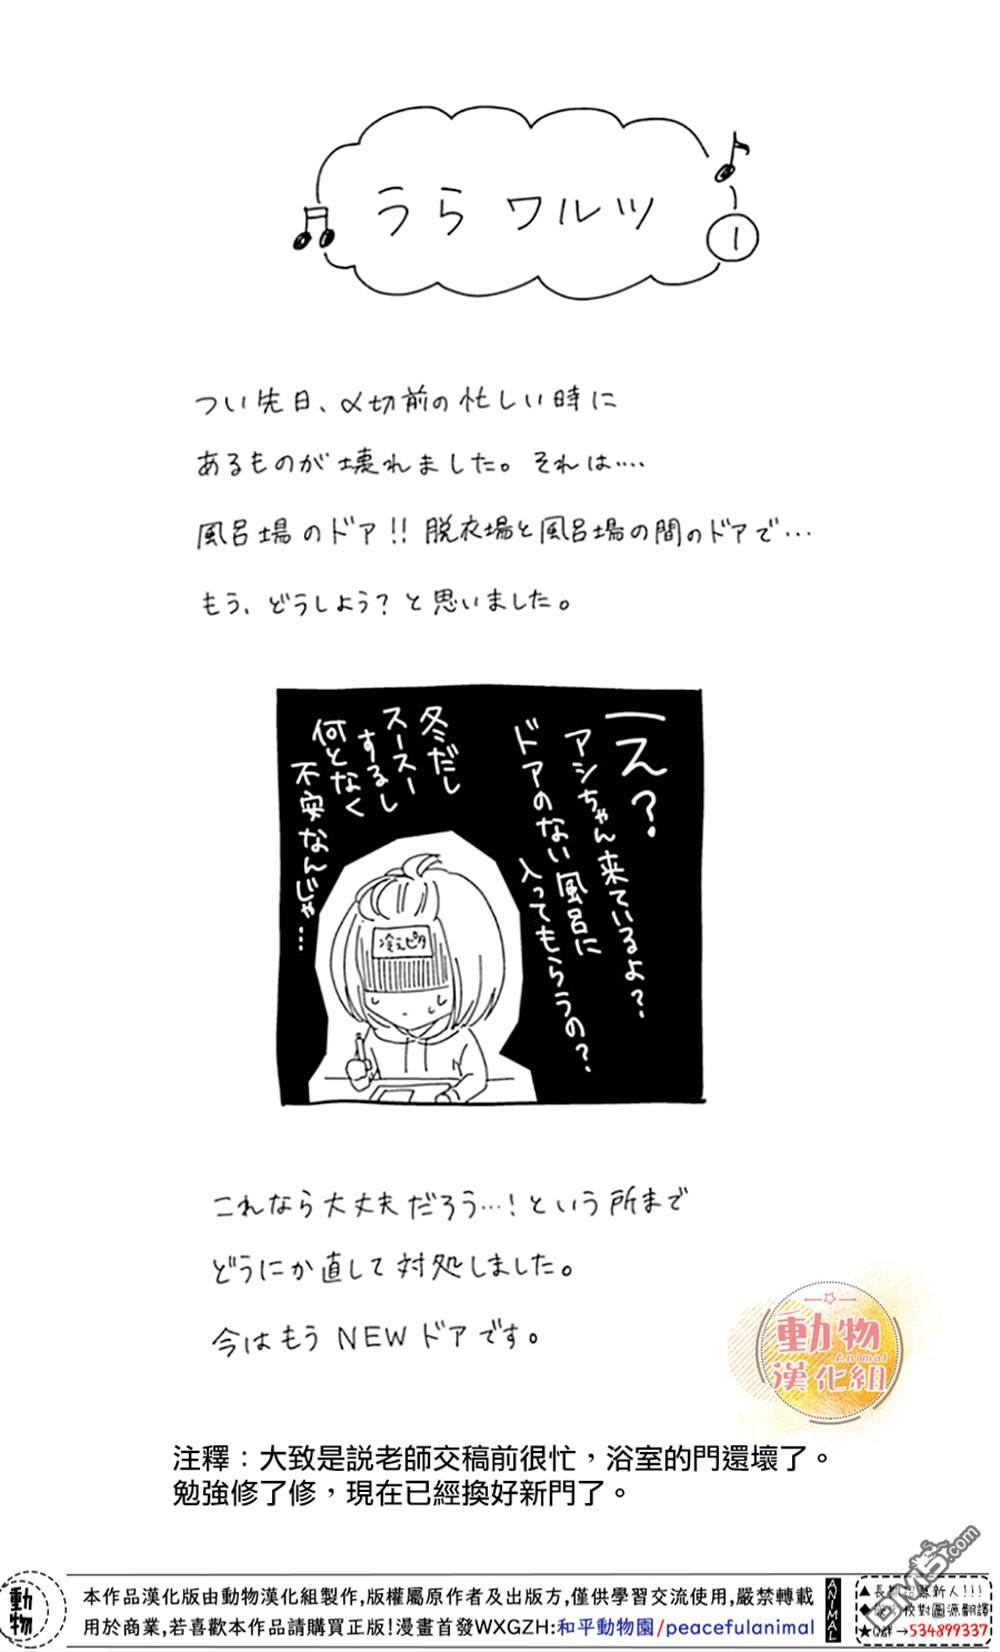 うらワルツ
1
つい先日、〆切前の忙しい時に
あるものが壊れました。それは….
風呂場のドア!! 脱衣場と風呂場の間のドアで…
もう、どうしよう?と思いました。
―え?
アシちゃん来ているよ?
ドアのない風呂に
入ってもらうの?
冬だし
スースー
するし
何となく
不安なんじゃ…
冷えピタ
これなら大丈夫だろう…!という所まで
どうにか直して対処しました。
今はもうNEWドアです。
動物
Animal
漢化組
注釋：大致是說老師交稿前很忙，浴室的門還壞了。
勉強修了修，現在已經換好新門了。
動物
本作品漢化版由動物漢化組製作,版權屬原作者及出版方,僅供學習交流使用,嚴禁轉載
用於商業,若喜歡本作品請購買正版!漫畫首發WXGZH:和平動物園/peacefulanimal
ANIMAL
▲長期招募新人!!!
校對圖源翻譯
★Q群→534899337